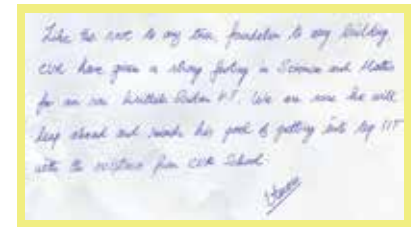 Like the root to any tree, foundation to any building,
CVR have given a strong footing in Science and Maths
for our son We are sure he will
leap ahead and his goal of getting into top IIT
with the from CVR School.